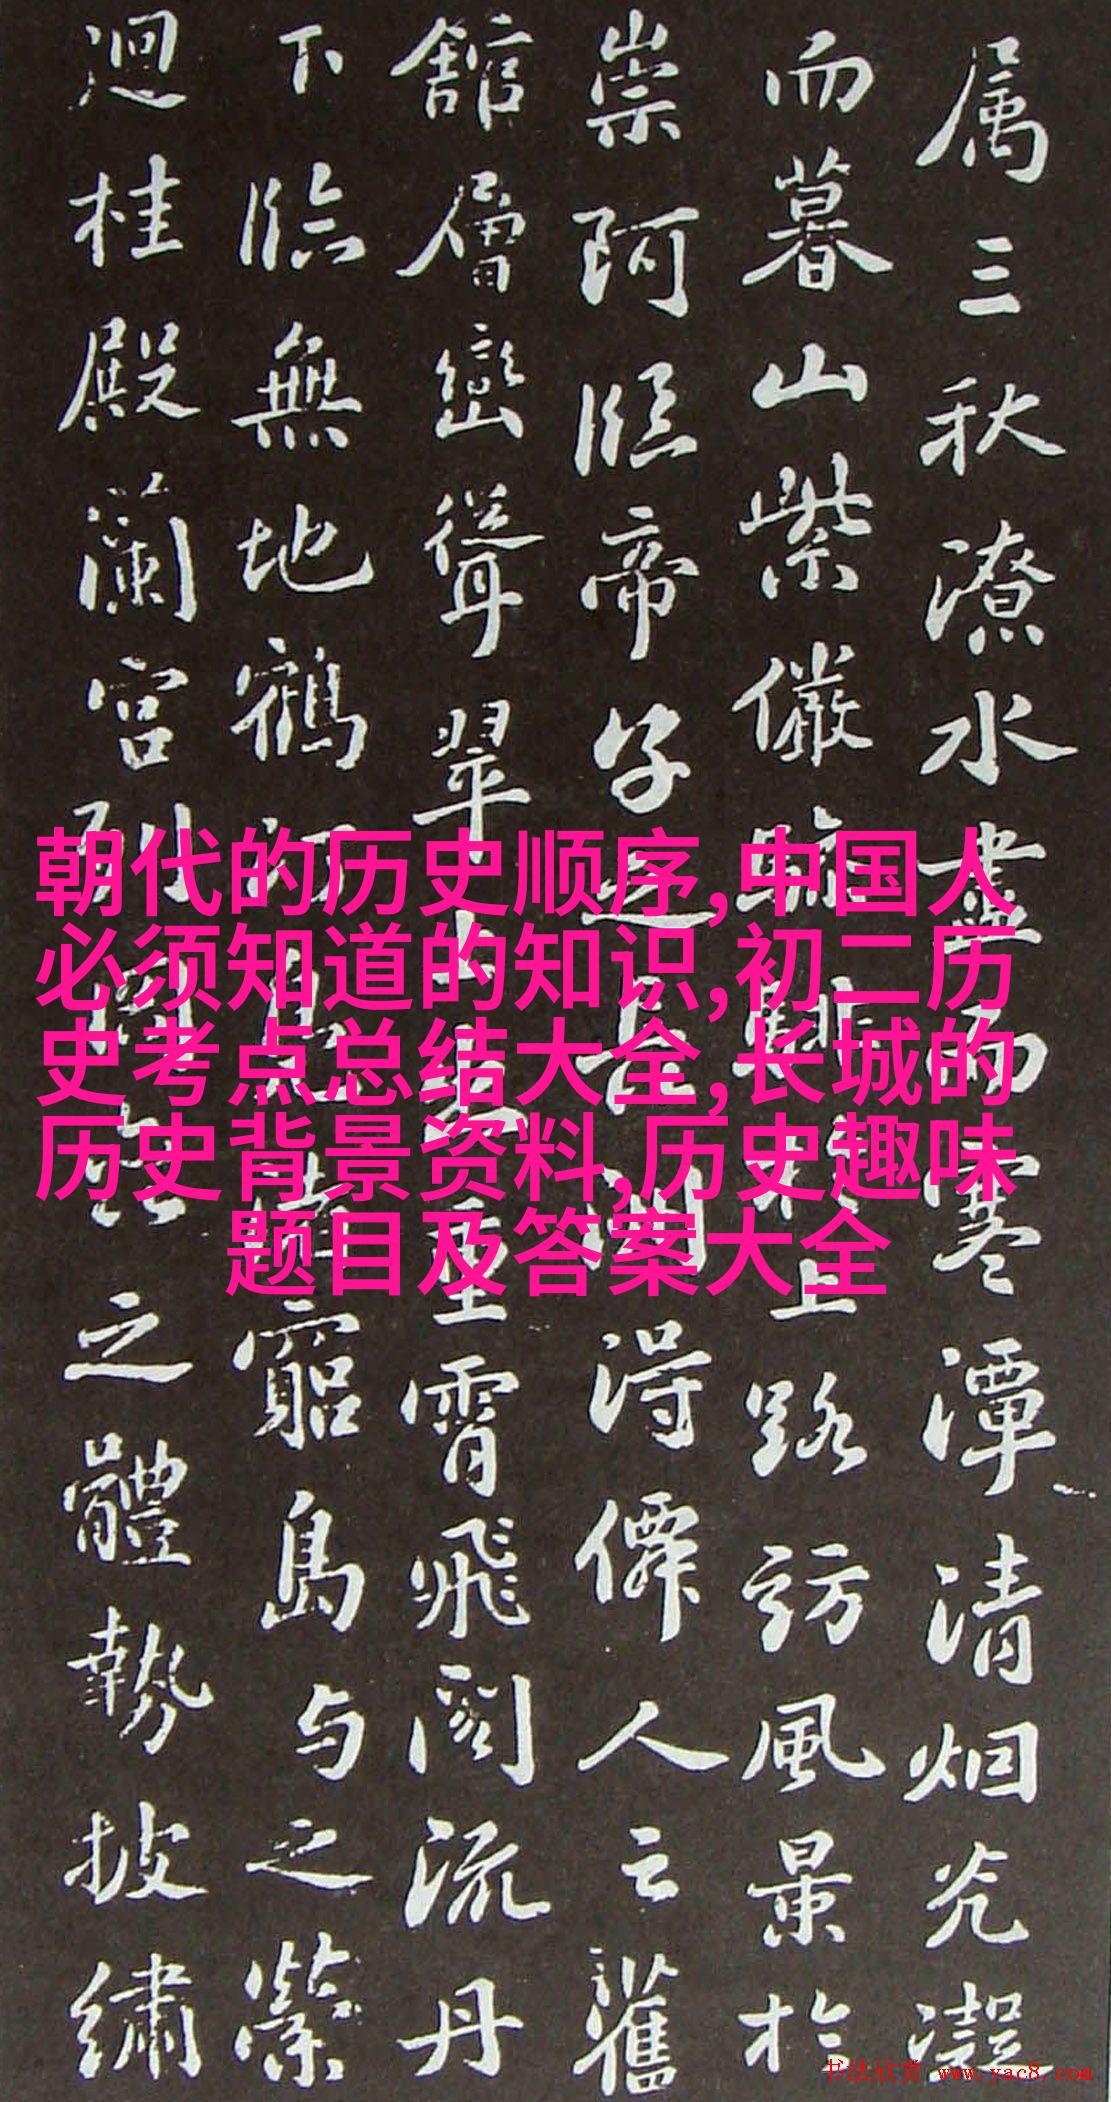 属三秋潦水盡而寒潭清烟光凝
而暮山紫儼驂騑於上路訪風景於
崇阿臨帝子之長洲得僊人之舊
館層巒聳翠上出重霄飛閣流丹
下臨無地鶴汀鳧渚窮島与之縈
迴桂殿蘭宮列岡巒之體勢披繡
朝代的历史顺序,中国人
必须知道的知识,初二历
史考点总结大全,长城的
历史背景资料,历史趣味
题目及答案大全
书法欣赏 www.yac8.com